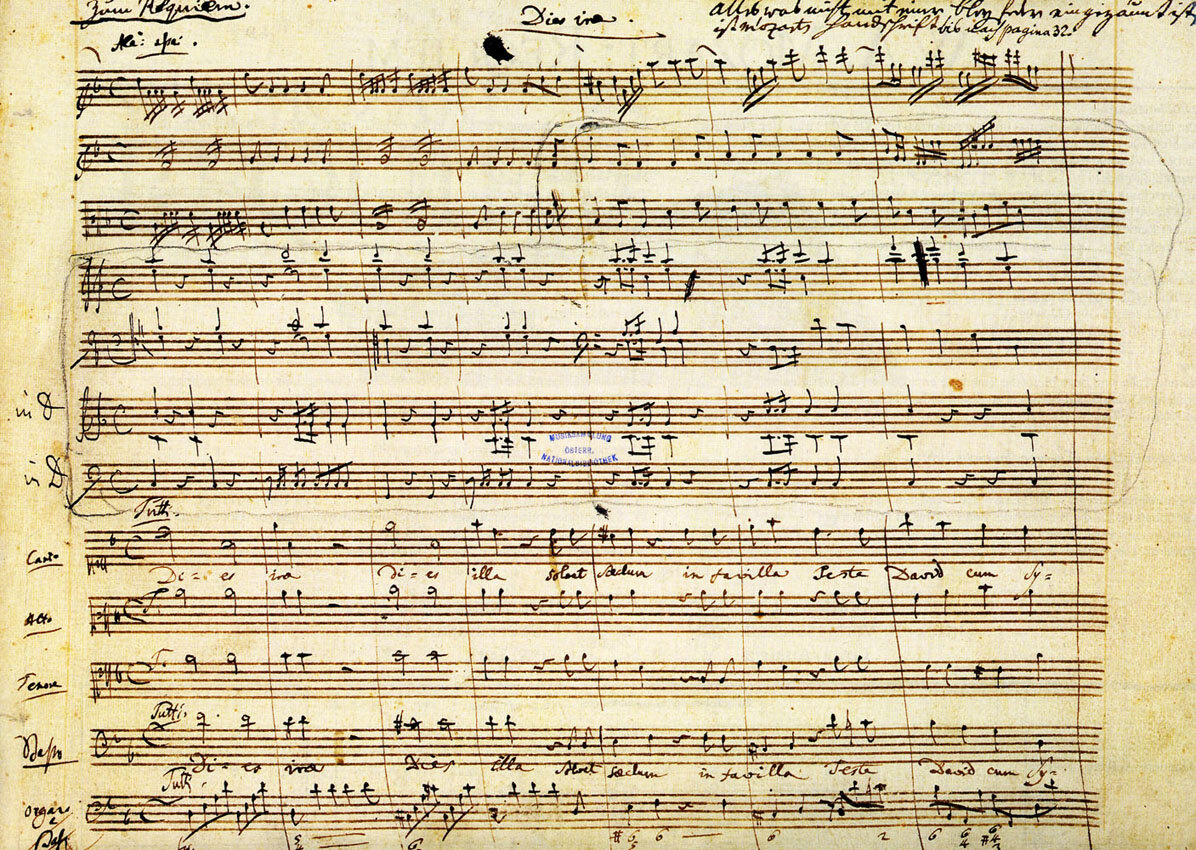 Zum Requiem.
Dies irae.
Alles was nicht mit einer Bley feder eingezäunt ist
ist Mozarts Handschrift bis nach pagina 32.
All: assai.
in D
in D
MUSIKSAMMLUNG
ÖSTERR.
NATIONALBIBLIOTHEK
Tutti.
Canto
Di = es irae di = es illa solvet Saeclum in favilla Teste David cum Sy =
Alto
T.
Tenore
T.
Tutti.
Basso
Di = es irae Dies illa solvet saeclum in favilla Teste David cum Sy =
Tutti.
organo
e
Bassi
5 6 6 6 2 6 6 6
4 4